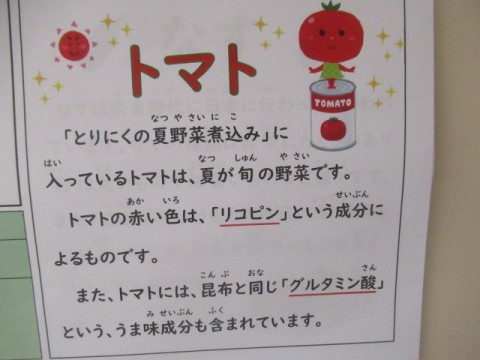 トマト
TOMATO
「とりにくの夏野菜煮込み」に
入っているトマトは、夏が旬の野菜です。
トマトの赤い色は、「リコピン」という成分に
よるものです。
また、トマトには、昆布と同じ「グルタミン酸」
という、うま味成分も含まれています。